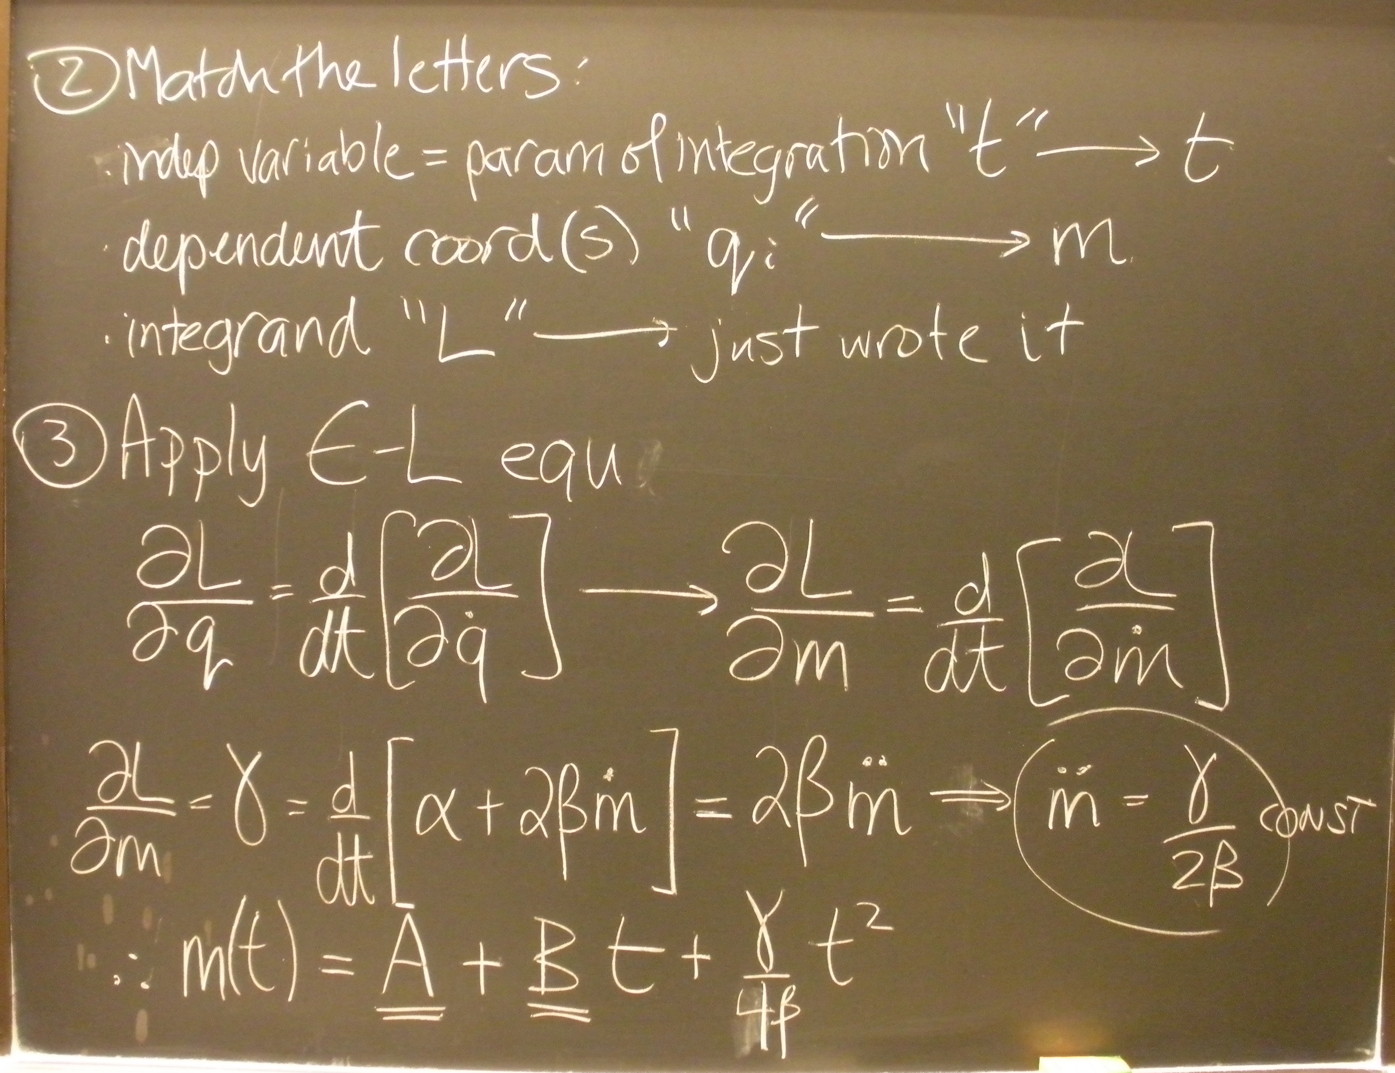 ② Match the letters:
· indep variable = param of integration "t" → t
· dependent coord(s) "qᵢ" → m
· integrand "L" → just wrote it
③ Apply E-L equ
∂L/∂q = d/dt [∂L/∂q̇] → ∂L/∂m = d/dt [∂L/∂ṁ]
∂L/∂m = γ = d/dt [α + 2βṁ] = 2βm̈ ⇒ m̈ = γ/2β const
∴ m(t) = A + B t + γ/4β t²